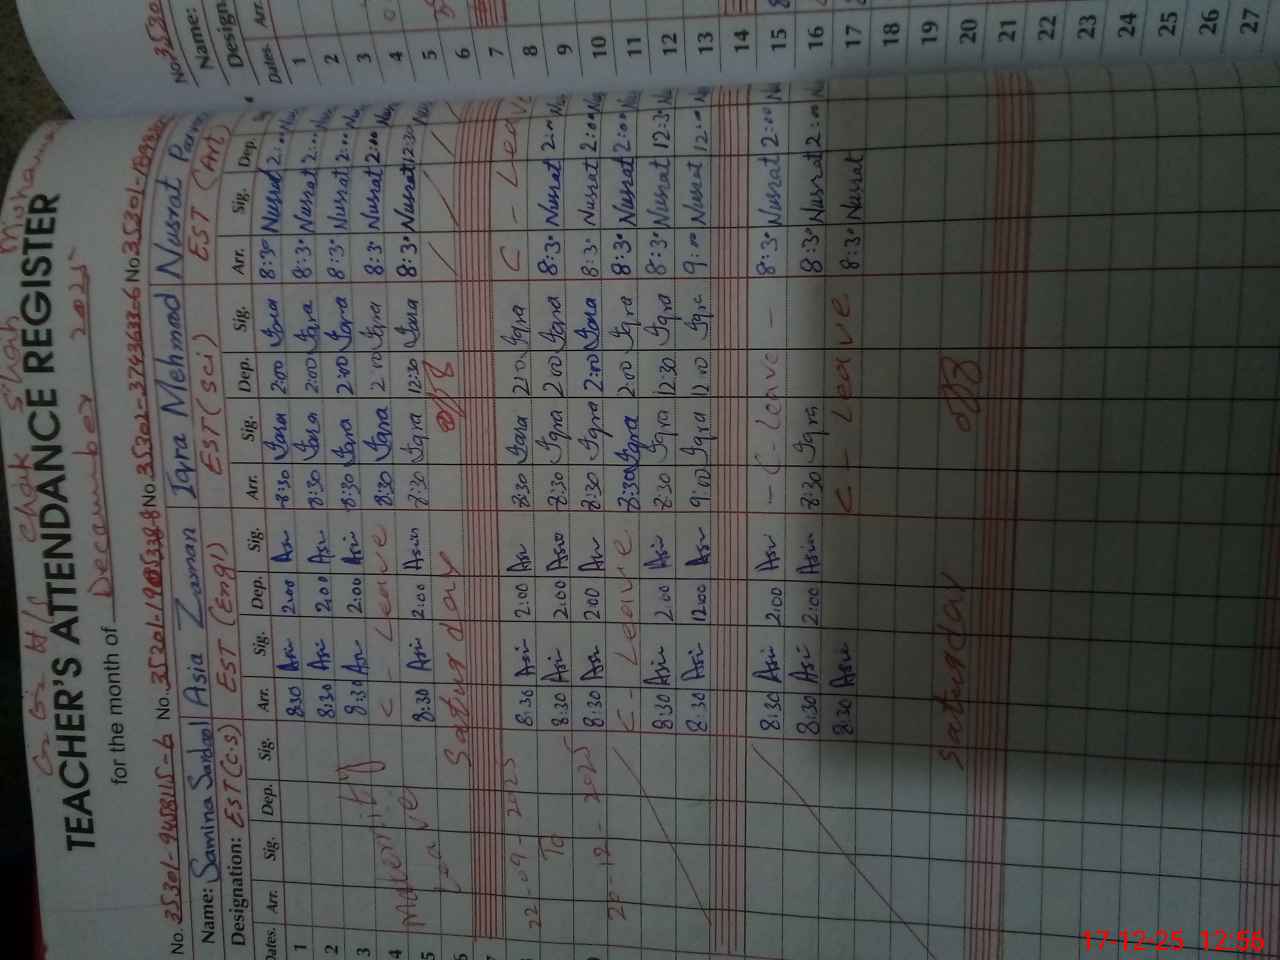 TEACHER'S ATTENDANCE REGISTER
for the month of December 2025
No. 35301-9458115-6 No. 35201- No. 35302-3743633-6 No. 35301-
Name: Samina Sardool Asia Zaman Iqra Mehmood Nusrat
Designation: EST (C.S) EST (Eng) EST (Sci) EST (Art)
Dates. Arr. Sig. Dep. Sig. Arr. Sig. Dep. Sig. Arr. Sig. Dep. Sig. Arr. Sig. Dep.
1 8:30 Asi 2:00 Asi 8:30 Iqra 2:00 Iqra 8:30 Nusrat 2:00
2 8:30 Asi 2:00 Asi 8:30 Iqra 2:00 Iqra 8:30 Nusrat 2:00
3 8:30 Asi 2:00 Asi 8:30 Iqra 2:00 Iqra 8:30 Nusrat 2:00
4 Maternity C - Leave 8:30 Iqra 2:00 Iqra 8:30 Nusrat 2:00
5 Leave 8:30 Asi 2:00 Asia 8:30 Iqra 12:30 Iqra 8:30 Nusrat 12:30
6 Saturday off
7
8 22-09-2025 8:30 Asi 2:00 Asi 8:30 Iqra 2:00 Iqra C - Leave
9 To 8:30 Asi 2:00 Asia 8:30 Iqra 2:00 Iqra 8:30 Nusrat 2:00
10 20-12-2025 8:30 Asi 2:00 Asi 8:30 Iqra 2:00 Iqra 8:30 Nusrat 2:00
11 C - Leave 8:30 Iqra 2:00 Iqra 8:30 Nusrat 2:00
12 8:30 Asi 2:00 Asi 8:30 Iqra 12:30 Iqra 8:30 Nusrat 12:30
13 8:30 Asi 12:00 Asi 9:00 Iqra 12:00 Iqra 9:00 Nusrat 12:00
14
15 8:30 Asi 2:00 Asi - C - Leave - 8:30 Nusrat 2:00
16 8:30 Asi 2:00 Asia 8:30 Iqra 8:30 Nusrat 2:00
17 8:30 Asi C - Leave 8:30 Nusrat
18
19
20 Saturday off
21
22
23
24
25
26
27
No. 3530
Name:
Design
Dates. Arr.
17-12-25 12:56